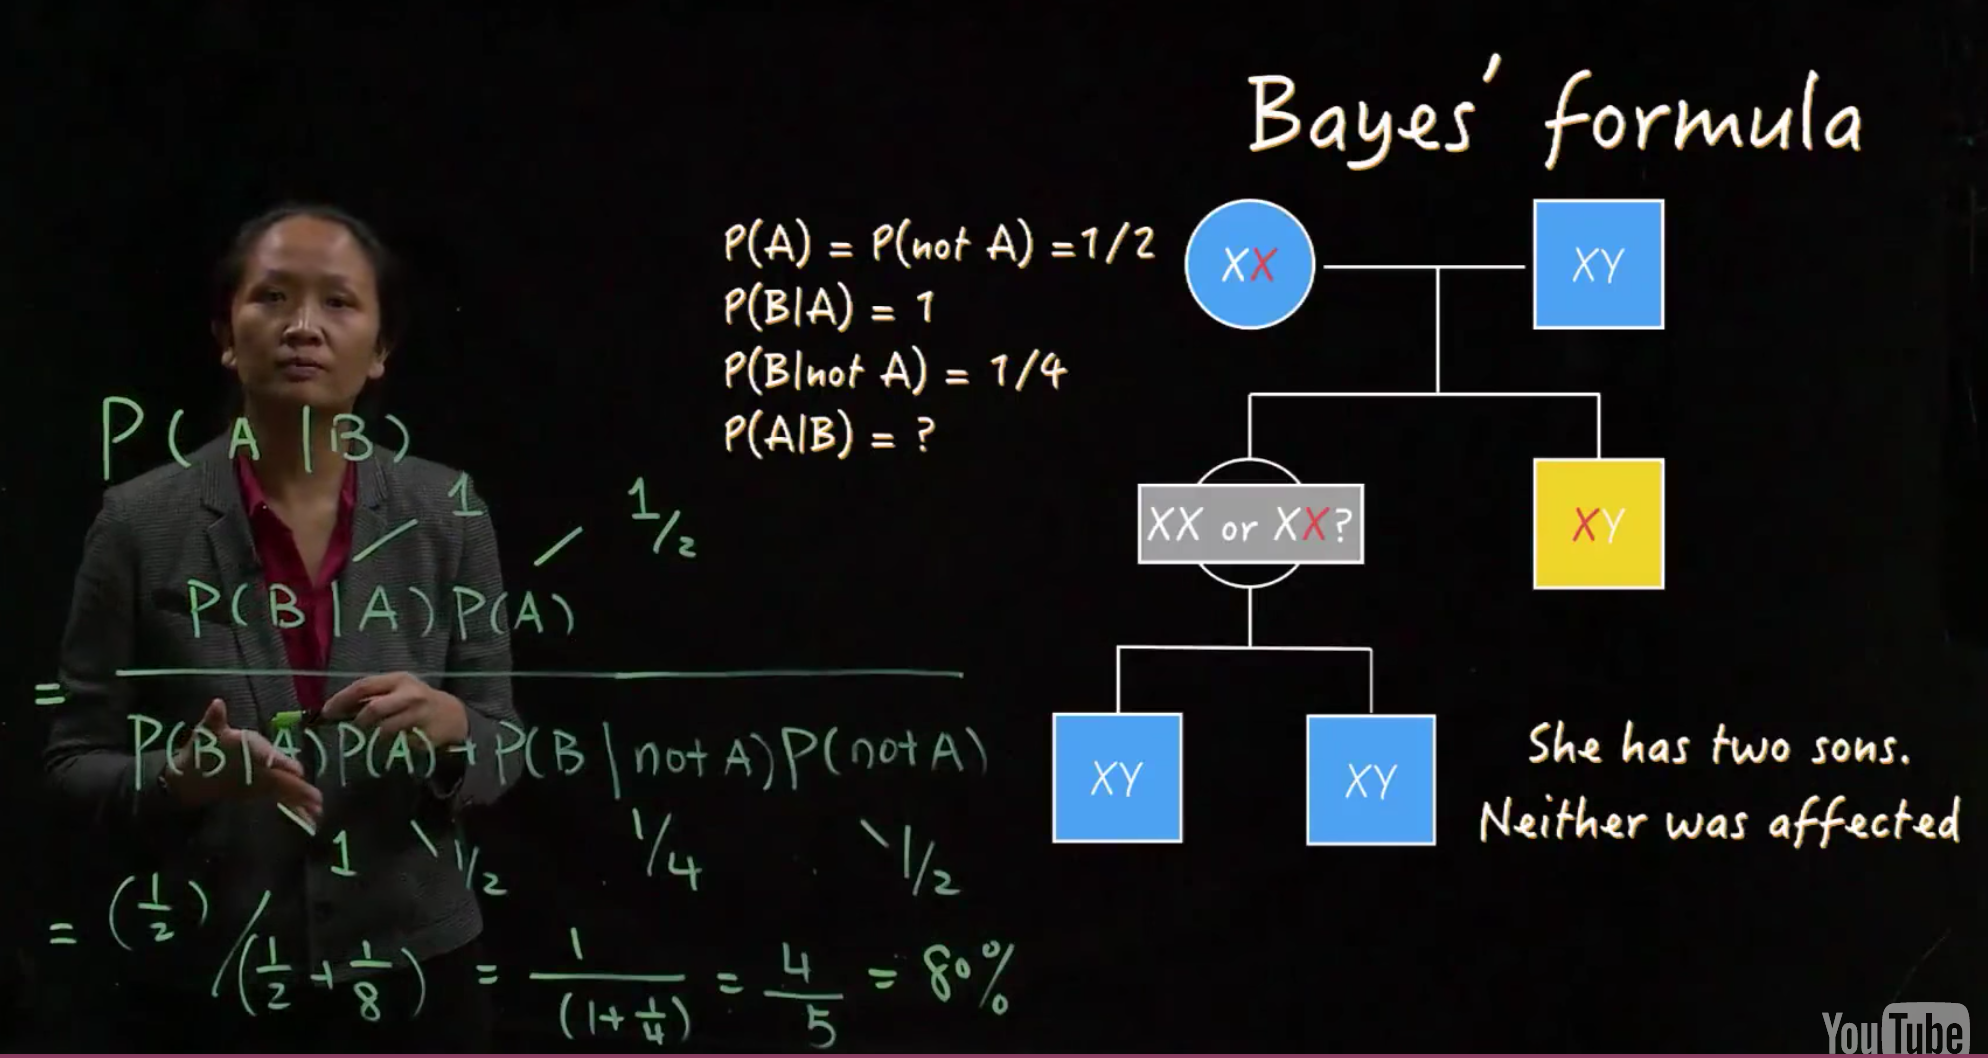 Bayes' formula
P(A) = P(not A) =1/2
P(B|A) = 1
P(B|not A) = 1/4
P(A|B) = ?
XX
XY
XX or XX?
XY
XY
XY
She has two sons.
Neither was affected
P(A|B)
1
1/2
P(B|A)P(A)
=
P(B|A)P(A)+P(B|not A)P(not A)
1
1/2
1/4
1/2
= (1/2)/(1/2+1/8) = 1/(1+1/4) = 4/5 = 80%
YouTube